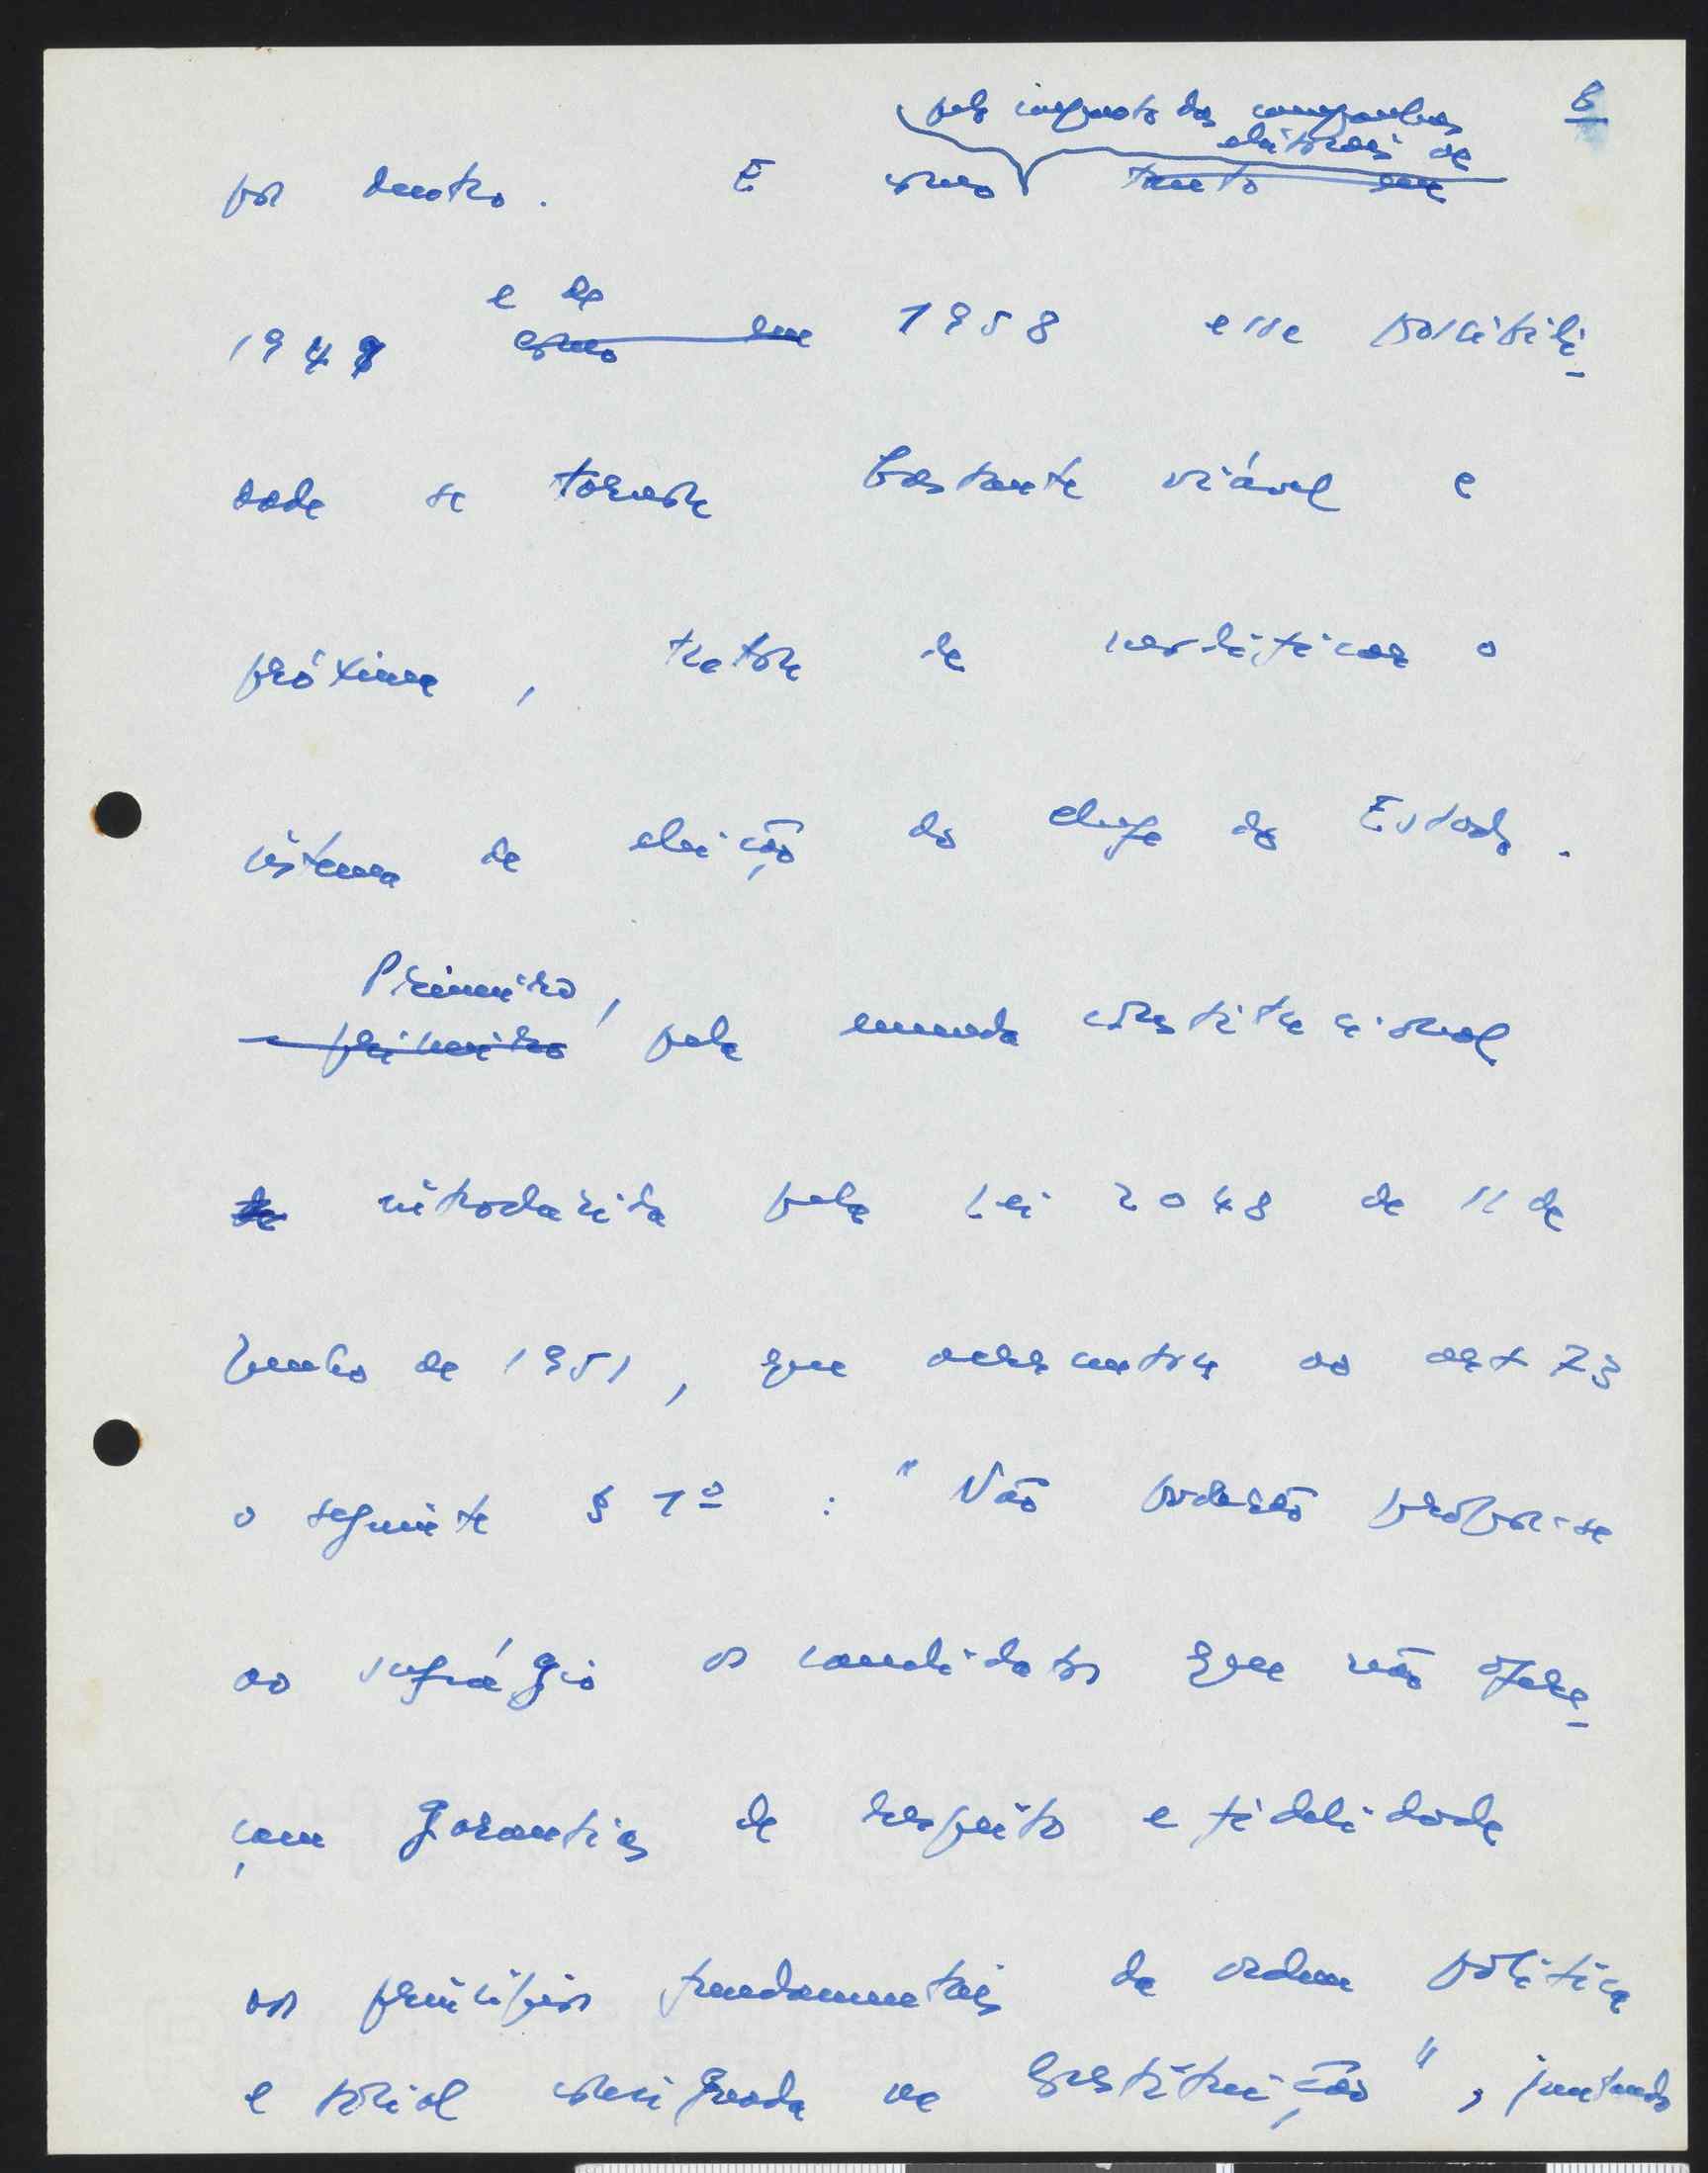 8
pelo impacto das campanhas
eleitorais de
por dentro. E como tanto em
e de
1949 como em 1958 essa possibili
dade se tornara bastante viável e
próxima, tratou de modificar o
sistema de eleição do chefe do Estado.
Primeiro,
- primeiro pela emenda constitucional
de introduzida pela Lei 2048 de 11 de
Junho de 1951, que acrescentou ao art 73
o seguinte § 1º : "Não poderão propor-se
ao sufrágio os candidatos que não ofere
çam garantias de respeito e fidelidade
aos princípios fundamentais da ordem política
e social consignada na Constituição", juntando